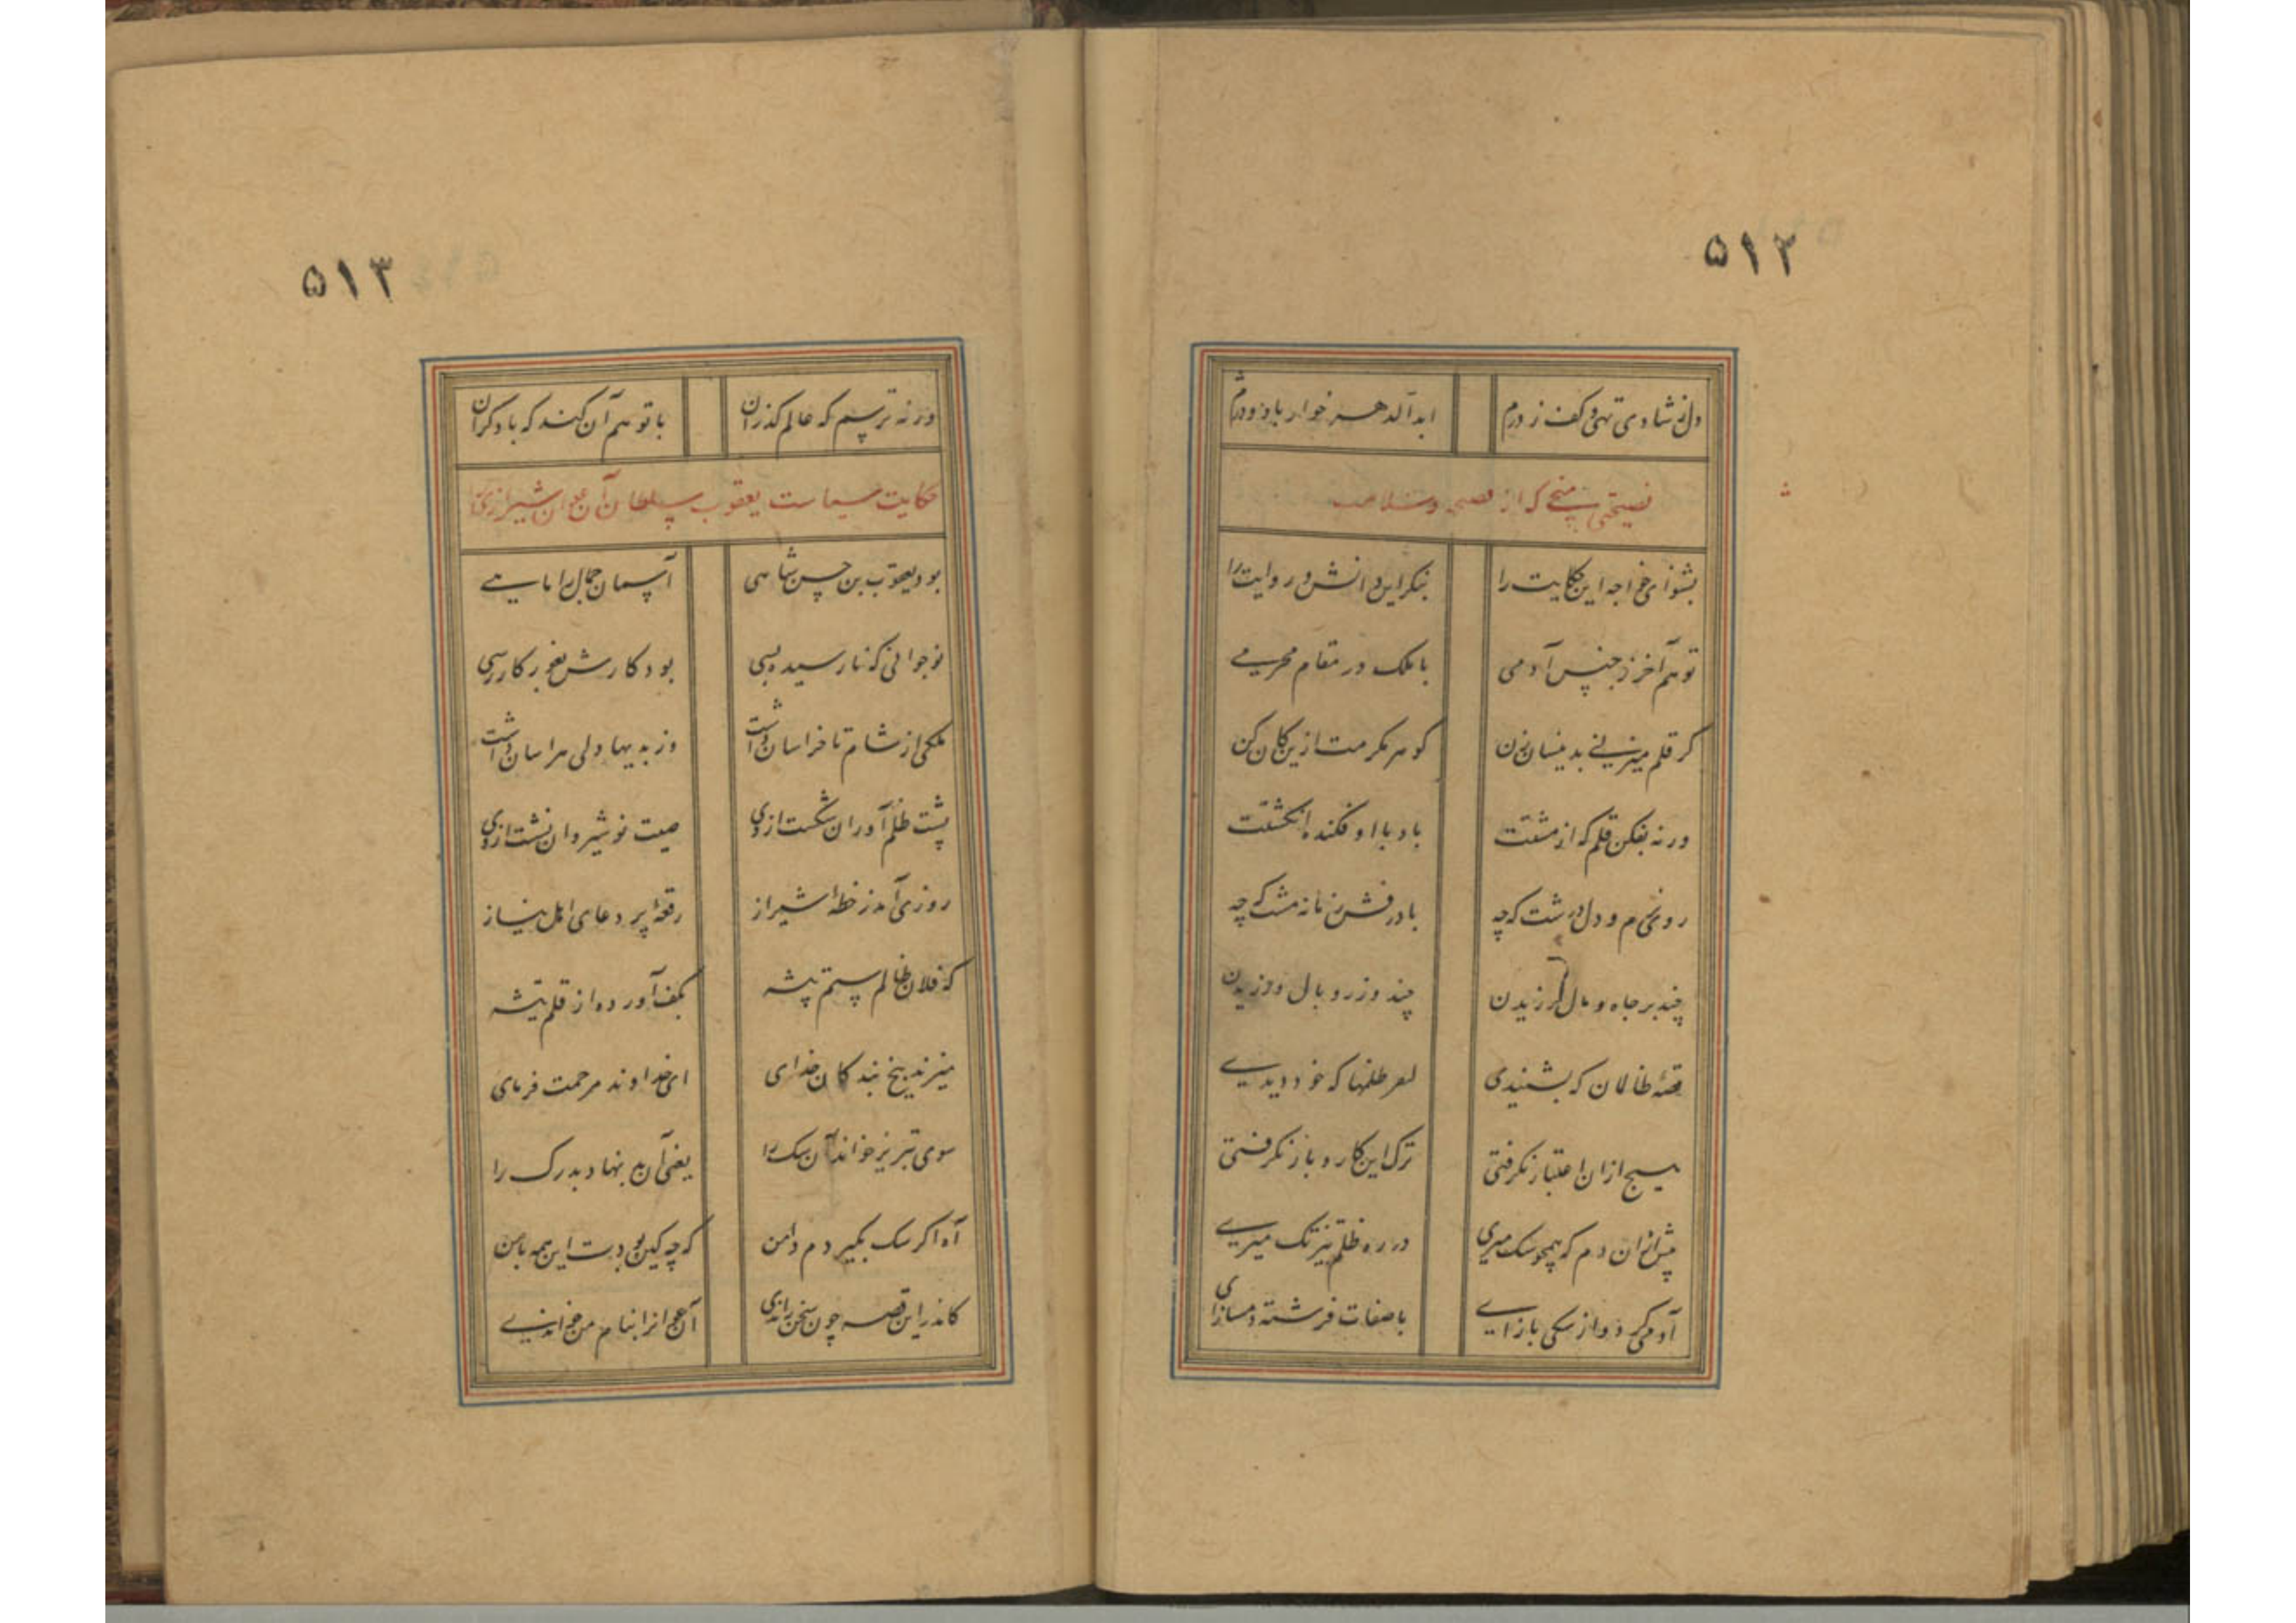 ۵۱۲
دل ز شادی تهی و کف ز درم
ابد الدهر خوار باد و درم
نصیحتی منجی که از
بشنو ای خواجه این حکایت را
بنگر این دانش و روایت را
تو هم آخر ز جنس آدمی
با ملک در مقام محرمی
گر قلم میزنی بدینسان زن
گوهر مکرمت ازین کان کن
ورنه بفکن قلم که از مشتت
باد با او فکنده انگشتت
روی نرم و دل درشت که چه
با درفش زمانه مشت که چه
چند بر جاه و مال لرزیدن
چند وزر و وبال ورزیدن
قصهٔ ظالان که بشنیدی
ظلمها که خود دیدی
هیچ ازان اعتبار نگرفتی
ترک این کار و بار نگرفتی
پیش ازان دم که همچو سک میری
در ره ظلم تیزتک میری
آدمی کرد و از سکی باز ای
با صفات فرشته دمساز ای
۵۱۳
ورنه ترسم که عالم گذران
با تو هم آن کند که با دگران
حکایت سیاست یعقوب سلطان آن عوان شیرازی را
بود یعقوب بن حسن شاهی
آسمان جمال را ماهی
نوجوانی که نارسیده بسی
بود کارش بغور کار رسی
ملکی از شام تا خراسان داشت
وز بدیها دلی هراسان داشت
پشت ظلم آوران شکست ازوی
صیت نوشیروان نشست ازوی
روزی آمد ز خطهٔ شیراز
رقعهٔ پر دعای اهل نیاز
که فلان ظالم ستم پیشه
بکف آورده از قلم تیشه
میزند بیخ بندکان خدای
ای خداوند مرحمت فرمای
سوی تبریز خواند آن سک را
یعنی آن بد نهاد بدرک را
آه اکر سک بگیردم دامن
که چه کین بودت این همه با من
کاندر این قصه چون سخن راندی
آن عوانرا بنام من خواندی